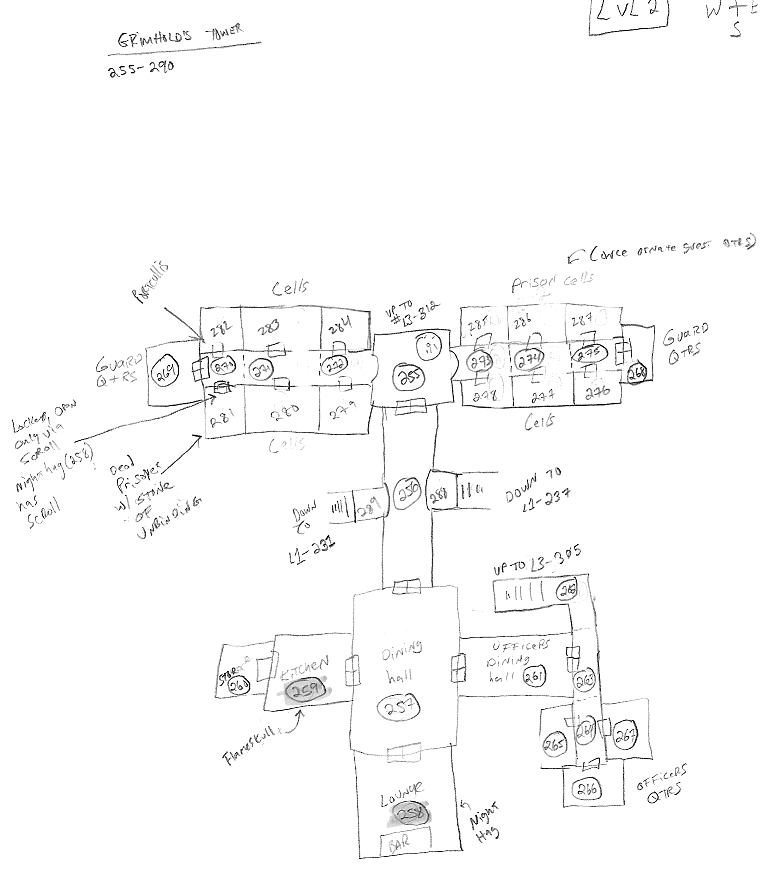 LVL 2
W + E
S
GRIMHOLD'S TOWER
255-290
(once ornate guest QTRS)
Portcullis
Cells
Prison Cells
UP TO
#L3-312
282
283
284
285
286
287
GUARD
QTRS
269
270
271
272
255
273
274
275
268
GUARD
QTRS
281
280
279
278
277
276
Cells
Cells
Locked, open
only via
Scroll
night hag (258)
has
Scroll
Dead
Prisoner
w/ STONE
OF
UNBINDING
DOWN
TO
L1-231
289
256
288
DOWN TO
L1-237
UP TO L3-305
262
STORAGE
260
KITCHEN
259
Dining
hall
257
OFFICERS
Dining
hall
261
263
Flameskull
265
264
267
266
OFFICERS
QTRS
LOUNGE
258
BAR
Night
Hag